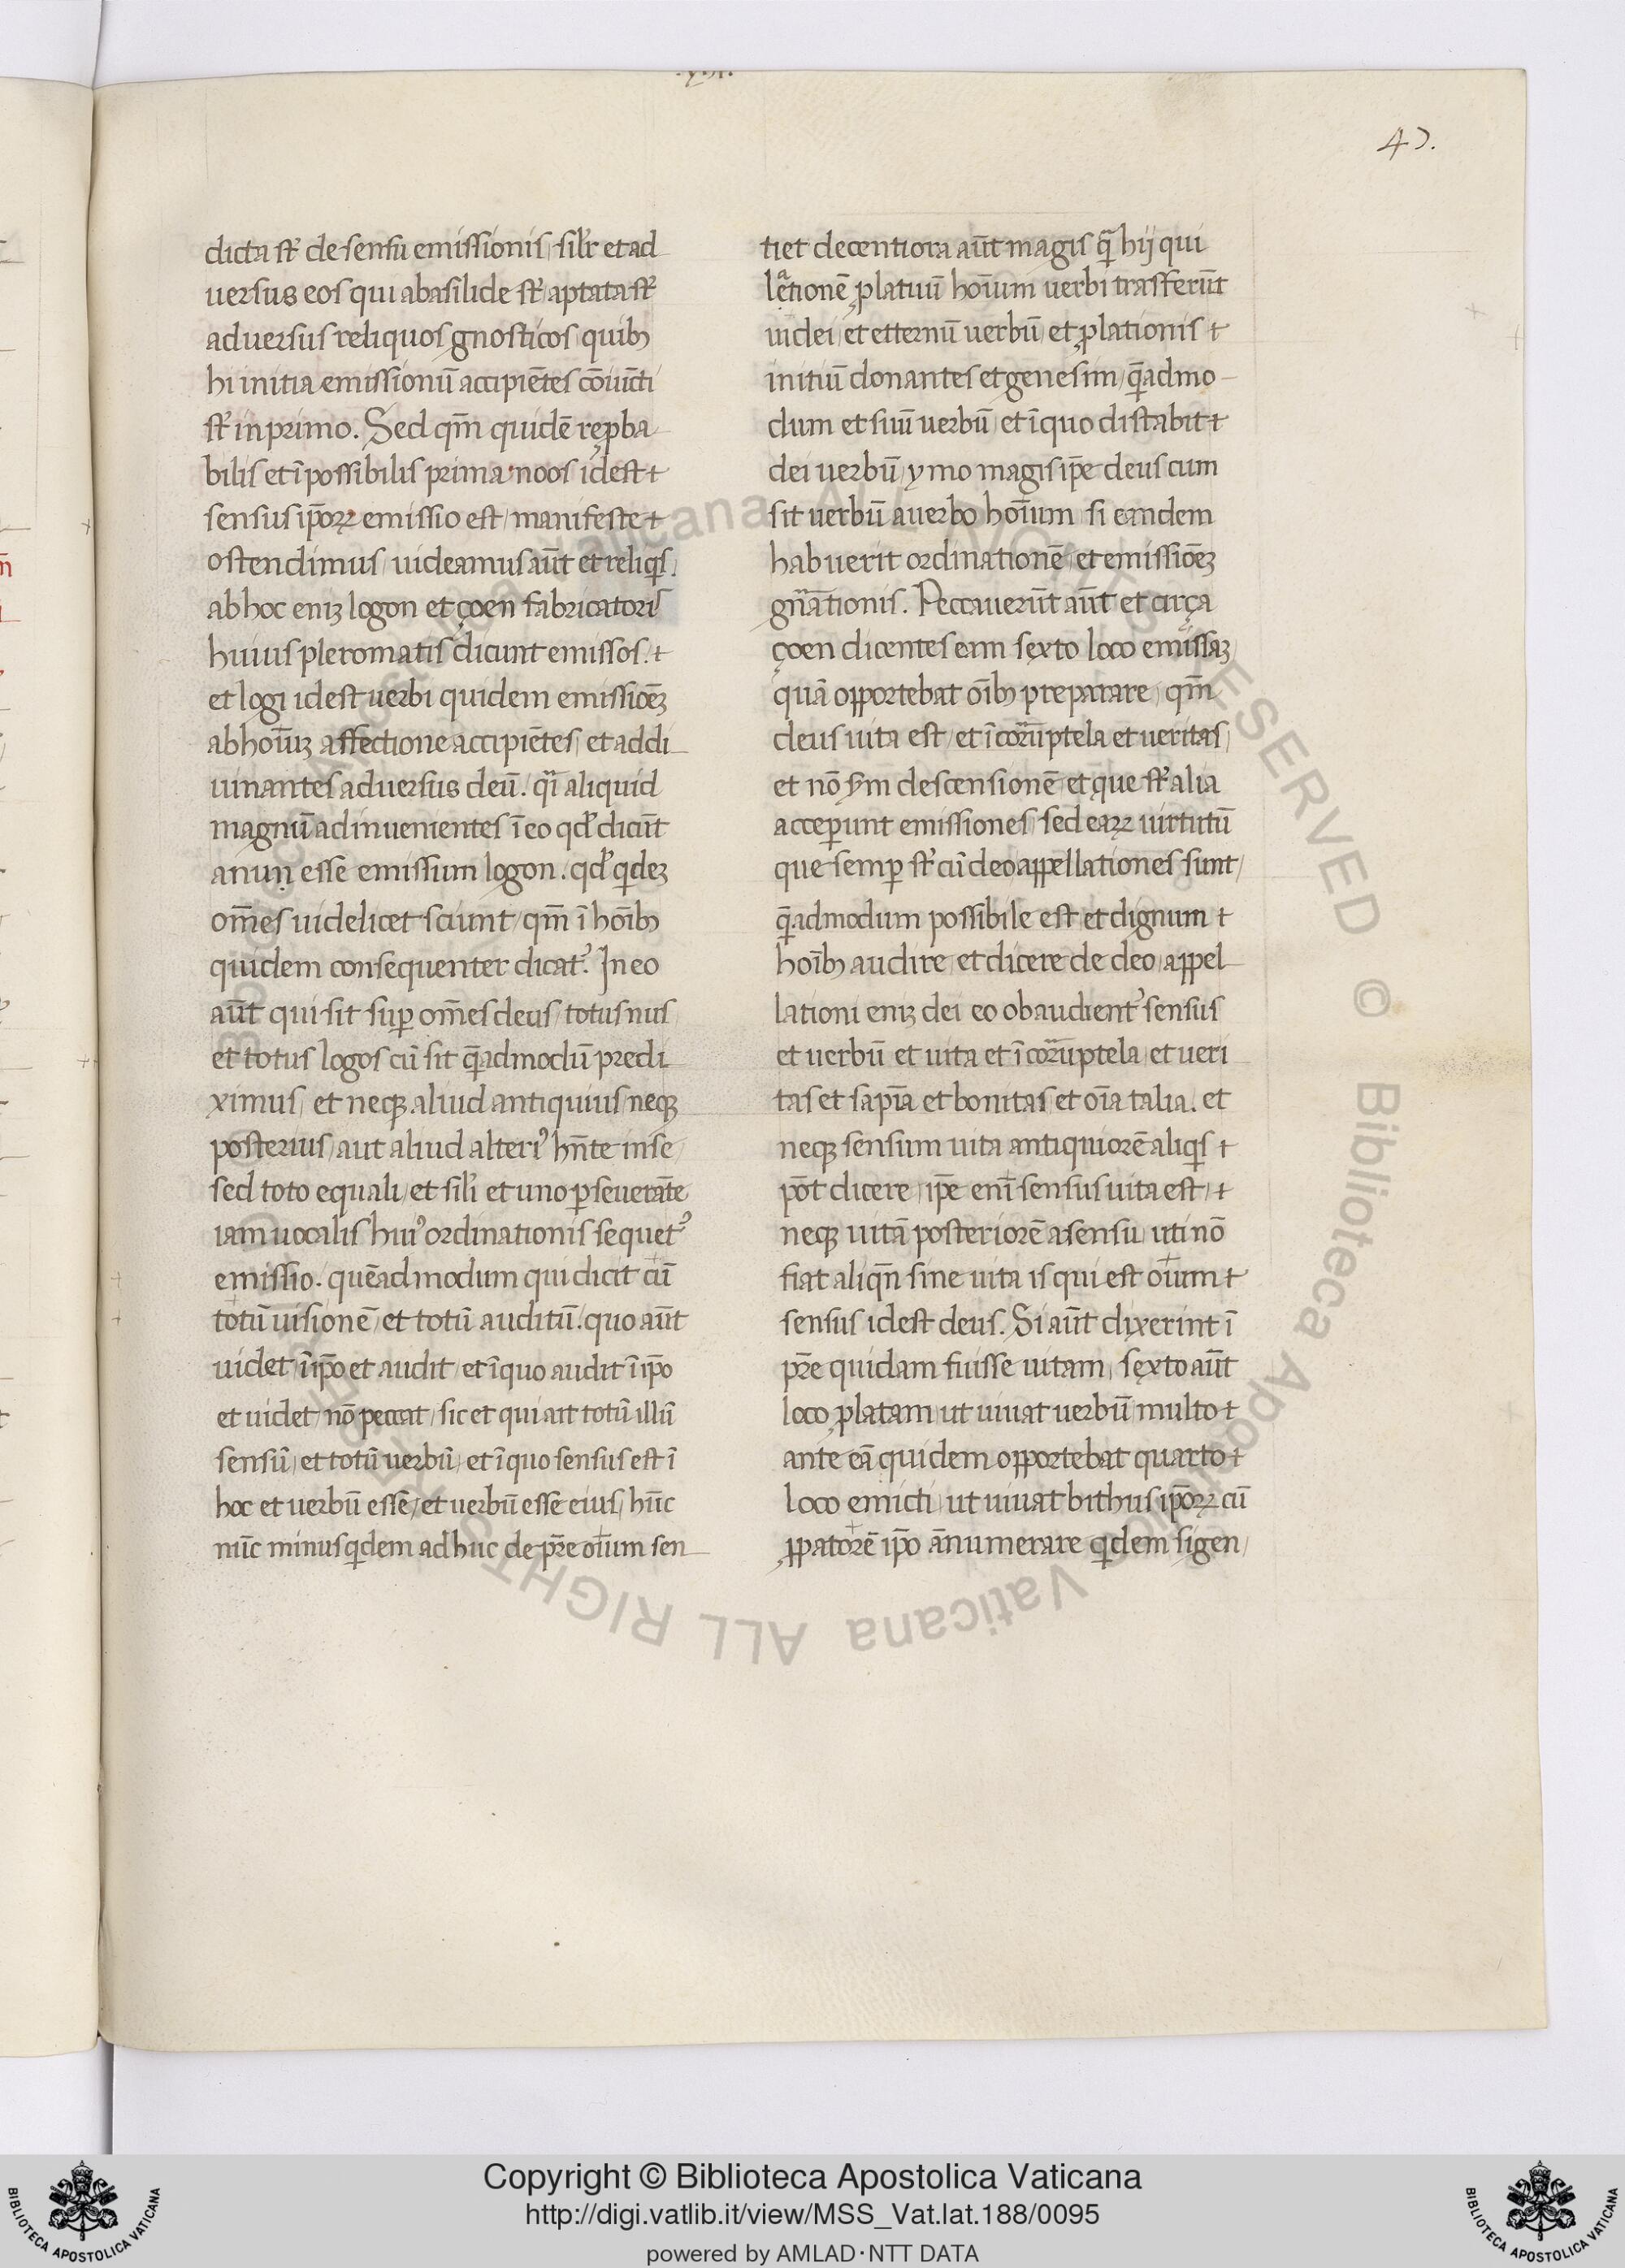 47.
dicta st̄ de sensu emissionis / silr̄ et ad
uersus eos qui abasilide st̄ / aptata st̄
aduersus reliquos gnosticos / quibꝫ
hi initia emissionū accipiētes cōuicti
st̄ in primo. Sed qm̄ quidē reꝓba
bilis et īpossibilis prima noos idest
sensus ip̄oꝝ emissio est / manifeste
ostendimus / uideamus aūt et reliqis.
ab hoc enīꝫ logon et çoen fabricatoris
huius pleromatis dicunt emissos.
et logi idest uerbi quidem emissiōeꝫ
ab hoīuꝫ affectione accipiētes / et addi
uinantes aduersus deū. qi̇ aliquid
magnū adinuenientes ī eo qd̓ dicūt
anun esse emissum logon. qd̓ qi̇deꝫ
om̄es uidelicet sciunt / qm̄ ī hoībꝫ
quidem consequenter dicat᷑. In eo
aūt qui sit suꝑ om̄es deus / totus nus
et totus logos cū sit q̄admodū predi
ximus / et neqꝫ aliud antiquius / neqꝫ
posterius / aut aliud alteriꝰ hn̄te in se
sed toto equali / et sili̇ et uno ꝑseuerāte
iam uocalis huiꝰ ordinationis sequet᷑
emissio. quēadmodum qui dicit cū
totū uisionē / et totū auditū. quo aūt
uidet / ī ip̄o et audit / et ī quo audit ī ip̄o
et uidet / nō peccat / sic et qui ait totū illū
sensū / et totū uerbū / et ī quo sensus est ī
hoc et uerbū esse / et uerbū esse eius / hūc
nūc minus qi̇dem adhuc de pr̄e oīum sen
tiet decentiora aūt magis q̄ hij qui
lationē ꝓlatiuū hoīum uerbi trasferūt
in dei / et etternū uerbū et ꝓlationis
initiū donantes et genesim / q̄admo
dum et suū uerbū / et ī quo distabit
dei uerbū / ymo magis ip̄e deus cum
sit uerbū a uerbo hoīum / si eandem
habuerit ordinationē / et emissiōeꝫ
gn̄ationis. Peccauerūt aūt et circa
çoen dicentes eam sexto loco emissaꝫ
quā opportebat oībꝫ preparare / qm̄
deus uita est / et īcorruptela et ueritas /
et nō sm̄ descensionē et que st̄ alia
acceꝑunt emissiones / sed eaꝝ uirtutū
que semꝑ st̄ cū deo appellationes sunt /
q̄admodum possibile est et dignum
hoībꝫ audire / et dicere de deo / appel
lationi enīꝫ dei eo obaudient᷑ sensus
et uerbū et uita et īcorruptela / et ueri
tas et sapīa et bonitas / et oīa talia. et
neqꝫ sensum uita antiquiorē aliqi̇s
pōt dicere / ip̄e enī sensus uita est /
neqꝫ uitā posteriorē a sensu / uti nō
fiat aliqn̄ sine uita is qui est oīum
sensus idest deus. Si aūt dixerint ī
pr̄e quidam fuisse uitam / sexto aūt
loco ꝓlatam / ut uiuat uerbū / multo
ante eā quidem opportebat quarto
loco emicti / ut uiuat bithus ip̄oꝝ cū
ꝓpatorē ip̄o ānumerare qi̇dem sigen /
Copyright © Biblioteca Apostolica Vaticana
http://digi.vatlib.it/view/MSS_Vat.lat.188/0095
powered by AMLAD·NTT DATA
BIBLIOTECA APOSTOLICA VATICANA
BIBLIOTECA APOSTOLICA VATICANA